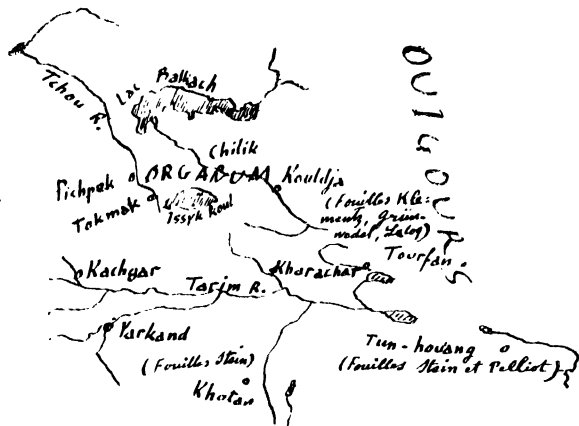 OUIGOURS
Lac Balkach
Tchou R.
Chilik
Pichpek
ORGANUM
Kouldja
Tokmak
Issyk Koul
(Fouilles Kle-
mentz, Grün-
wedel, Lecoq)
Tourfan
Kachgar
Kharachar
Tarim R.
Yarkand
(Fouilles Stein)
Khotan
Tun-houang
(Fouilles Stein et Pelliot)